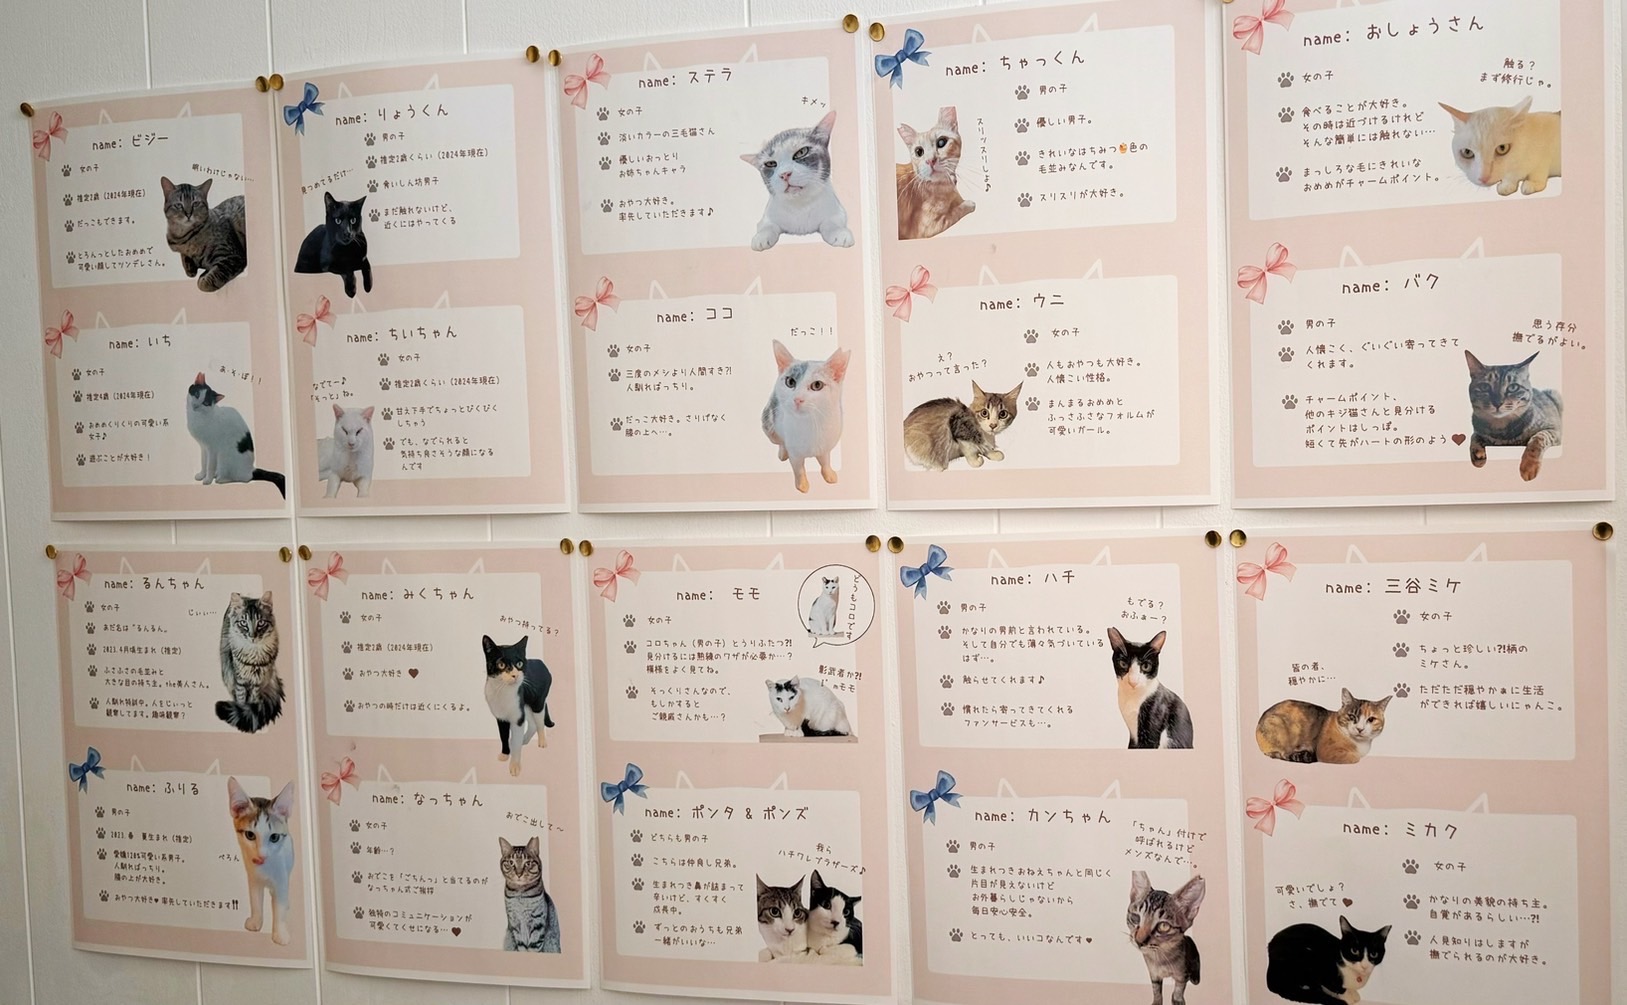 name: ビジー
女の子
推定2歳(2024年現在)
だっこもできます。
とろんっとしたおめめで
可愛い顔してツンデレさん。
眠いわけじゃない…
name: いち
女の子
推定4歳(2024年現在)
おめめくりくりの可愛い系
女子♪
遊ぶことが大好き!
あ・そ・ぼ!!
name: りょうくん
男の子
推定2歳くらい(2024年現在)
食いしん坊男子
まだ触れないけど、
近くにはやってくる
見つめてるだけ…
name: ちいちゃん
女の子
推定2歳くらい(2024年現在)
甘え下手でちょっとびくびく
しちゃう
でも、なでられると
気持ち良さそうな顔になる
んです
なでてー♪
「そっと」ね。
name: ステラ
女の子
淡いカラーの三毛猫さん
優しいおっとり
お姉ちゃんキャラ
おやつ大好き。
率先していただきます♪
キメッ
name: ココ
女の子
三度のメシより人間すき?!
人馴ればっちり。
だっこ大好き。さりげなく
膝の上へ…。
だっこ!!
name: ちゃっくん
男の子
優しい男子。
きれいなはちみつ🍯色の
毛並みなんです。
スリスリが大好き。
スリッスリしよ♪
name: ウニ
女の子
人もおやつも大好き。
人懐こい性格。
まんまるおめめと
ふっさふさなフォルムが
可愛いガール。
え?
おやつって言った?
name: おしょうさん
女の子
食べることが大好き。
その時は近づけるけれど
そんな簡単には触れない…
まっしろな毛にきれいな
おめめがチャームポイント。
触る?
まず修行じゃ。
name: バク
男の子
人懐こく、ぐいぐい寄ってきて
くれます。
チャームポイント、
他のキジ猫さんと見分ける
ポイントはしっぽ。
短くて先がハートの形のよう♥
思う存分
撫でるがよい。
name: るんちゃん
女の子
あだ名は"るんるん。
2023.4月頃生まれ(推定)
ふさふさの毛並みと
大きな目の持ち主。the美人さん。
人馴れ特訓中。人をじぃっと
観察してます。趣味観察?
じぃぃ…
name: ふりる
男の子
2023.春 夏生まれ(推定)
愛嬌120%可愛い系男子。
人馴ればっちり。
膝の上が大好き。
おやつ大好き♥率先していただきます!!
ぺろん
name: みくちゃん
女の子
推定2歳(2024年現在)
おやつ大好き ♥
おやつの時だけは近くにくるよ。
おやつ持ってる?
name: なっちゃん
女の子
年齢…?
おでこを「ごちんっ」と当てるのが
なっちゃん式ご挨拶
独特のコミュニケーションが
可愛くてくせになる…♥
おでこ出して〜
name: モモ
女の子
コロちゃん(男の子)とうりふたつ?!
見分けるには熟練のワザが必要か…?
模様をよく見てね。
そっくりさんなので、
もしかすると
ご親戚さんかも…?
どうもコロです
影武者か?!
I'mモモ
name: ポンタ & ポンズ
どちらも男の子
こちらは仲良し兄弟。
生まれつき鼻が詰まって
辛いけど、すくすく
成長中。
ずっとのおうちも兄弟
一緒がいいな…
我ら
ハチワレブラザーズ♪
name: ハチ
男の子
かなりの男前と言われている。
そして自分でも薄々気づいている
はず…。
触らせてくれます♪
慣れたら寄ってきてくれる
ファンサービスも…。
もでる?
おふぁー?
name: カンちゃん
男の子
生まれつきおねえちゃんと同じく
片目が見えないけど
お外暮らしじゃないから
毎日安心安全。
とっても、いいコなんです♥
「ちゃん」付けで
呼ばれてるけど
メンズなんで…。
name: 三谷ミケ
女の子
ちょっと珍しい?!柄の
ミケさん。
ただただ穏やかぁに生活
ができれば嬉しいにゃんこ。
皆の者、
穏やかに…
name: ミカク
女の子
かなりの美貌の持ち主。
自覚があるらしい…?!
人見知りはしますが
撫でられるのが大好き。
可愛いでしょ?
さ、撫でて♥